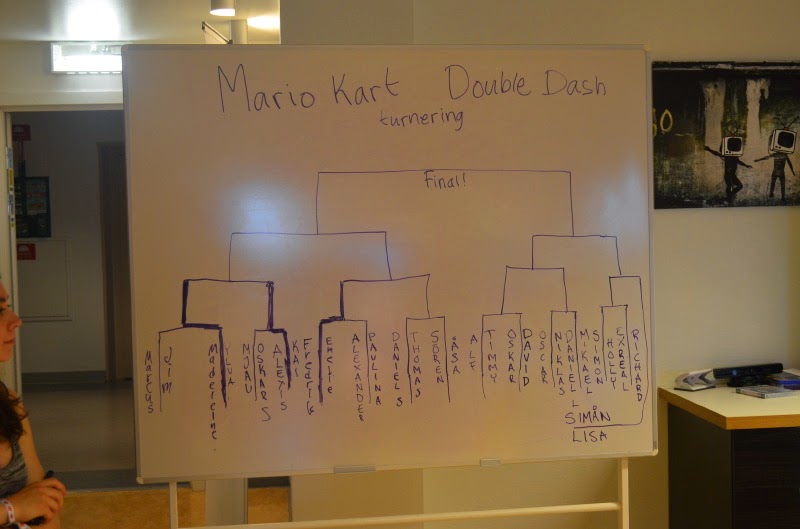 Mario Kart Double Dash
turnering
Final!
Marcus
Jim
Madeleine
YLVA
OSKAR S
ALEXIS
KAI
Fredrik
Emelie
ALEXANDER
PAULINA
DANIEL S
THOMAS
SÖREN
ÅSA
ALF
TIMMY
OSKAR
DAVID
OSCAR
NIKLAS
DANIEL L
MIKAEL
SIMON
HOLLY
EXREAL
RICHARD
SIMÅN
LISA